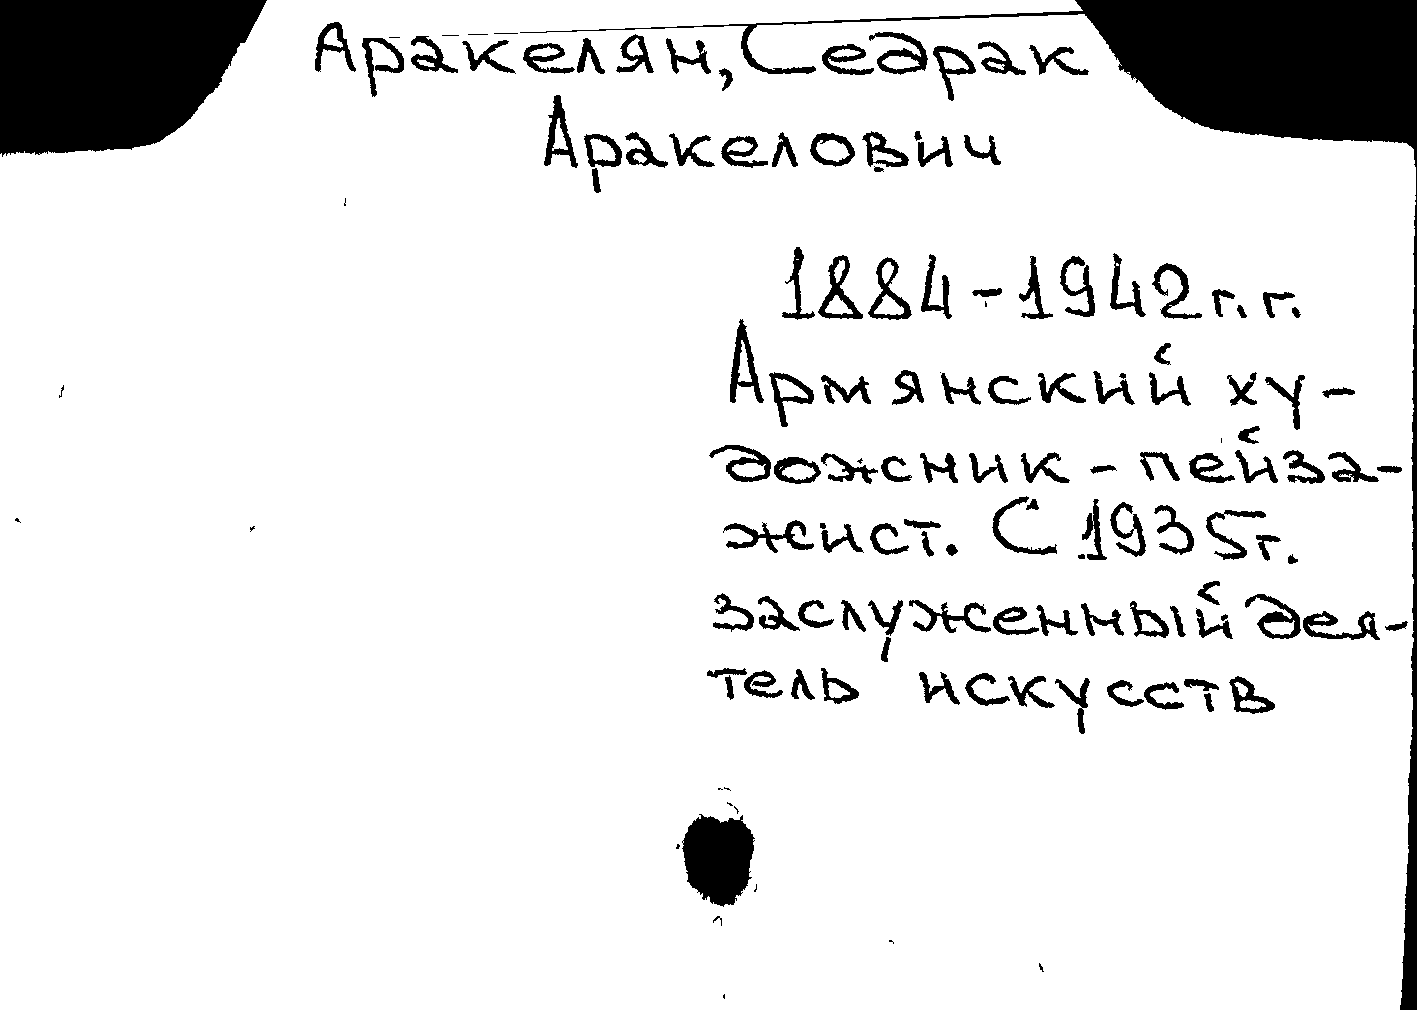 Аракелян, Седрак
Аракелович
1884-1942г.г.
Армянский ху-
дожник-пейза-
жист. С 1935г.
заслуженный дея-
тель искусств